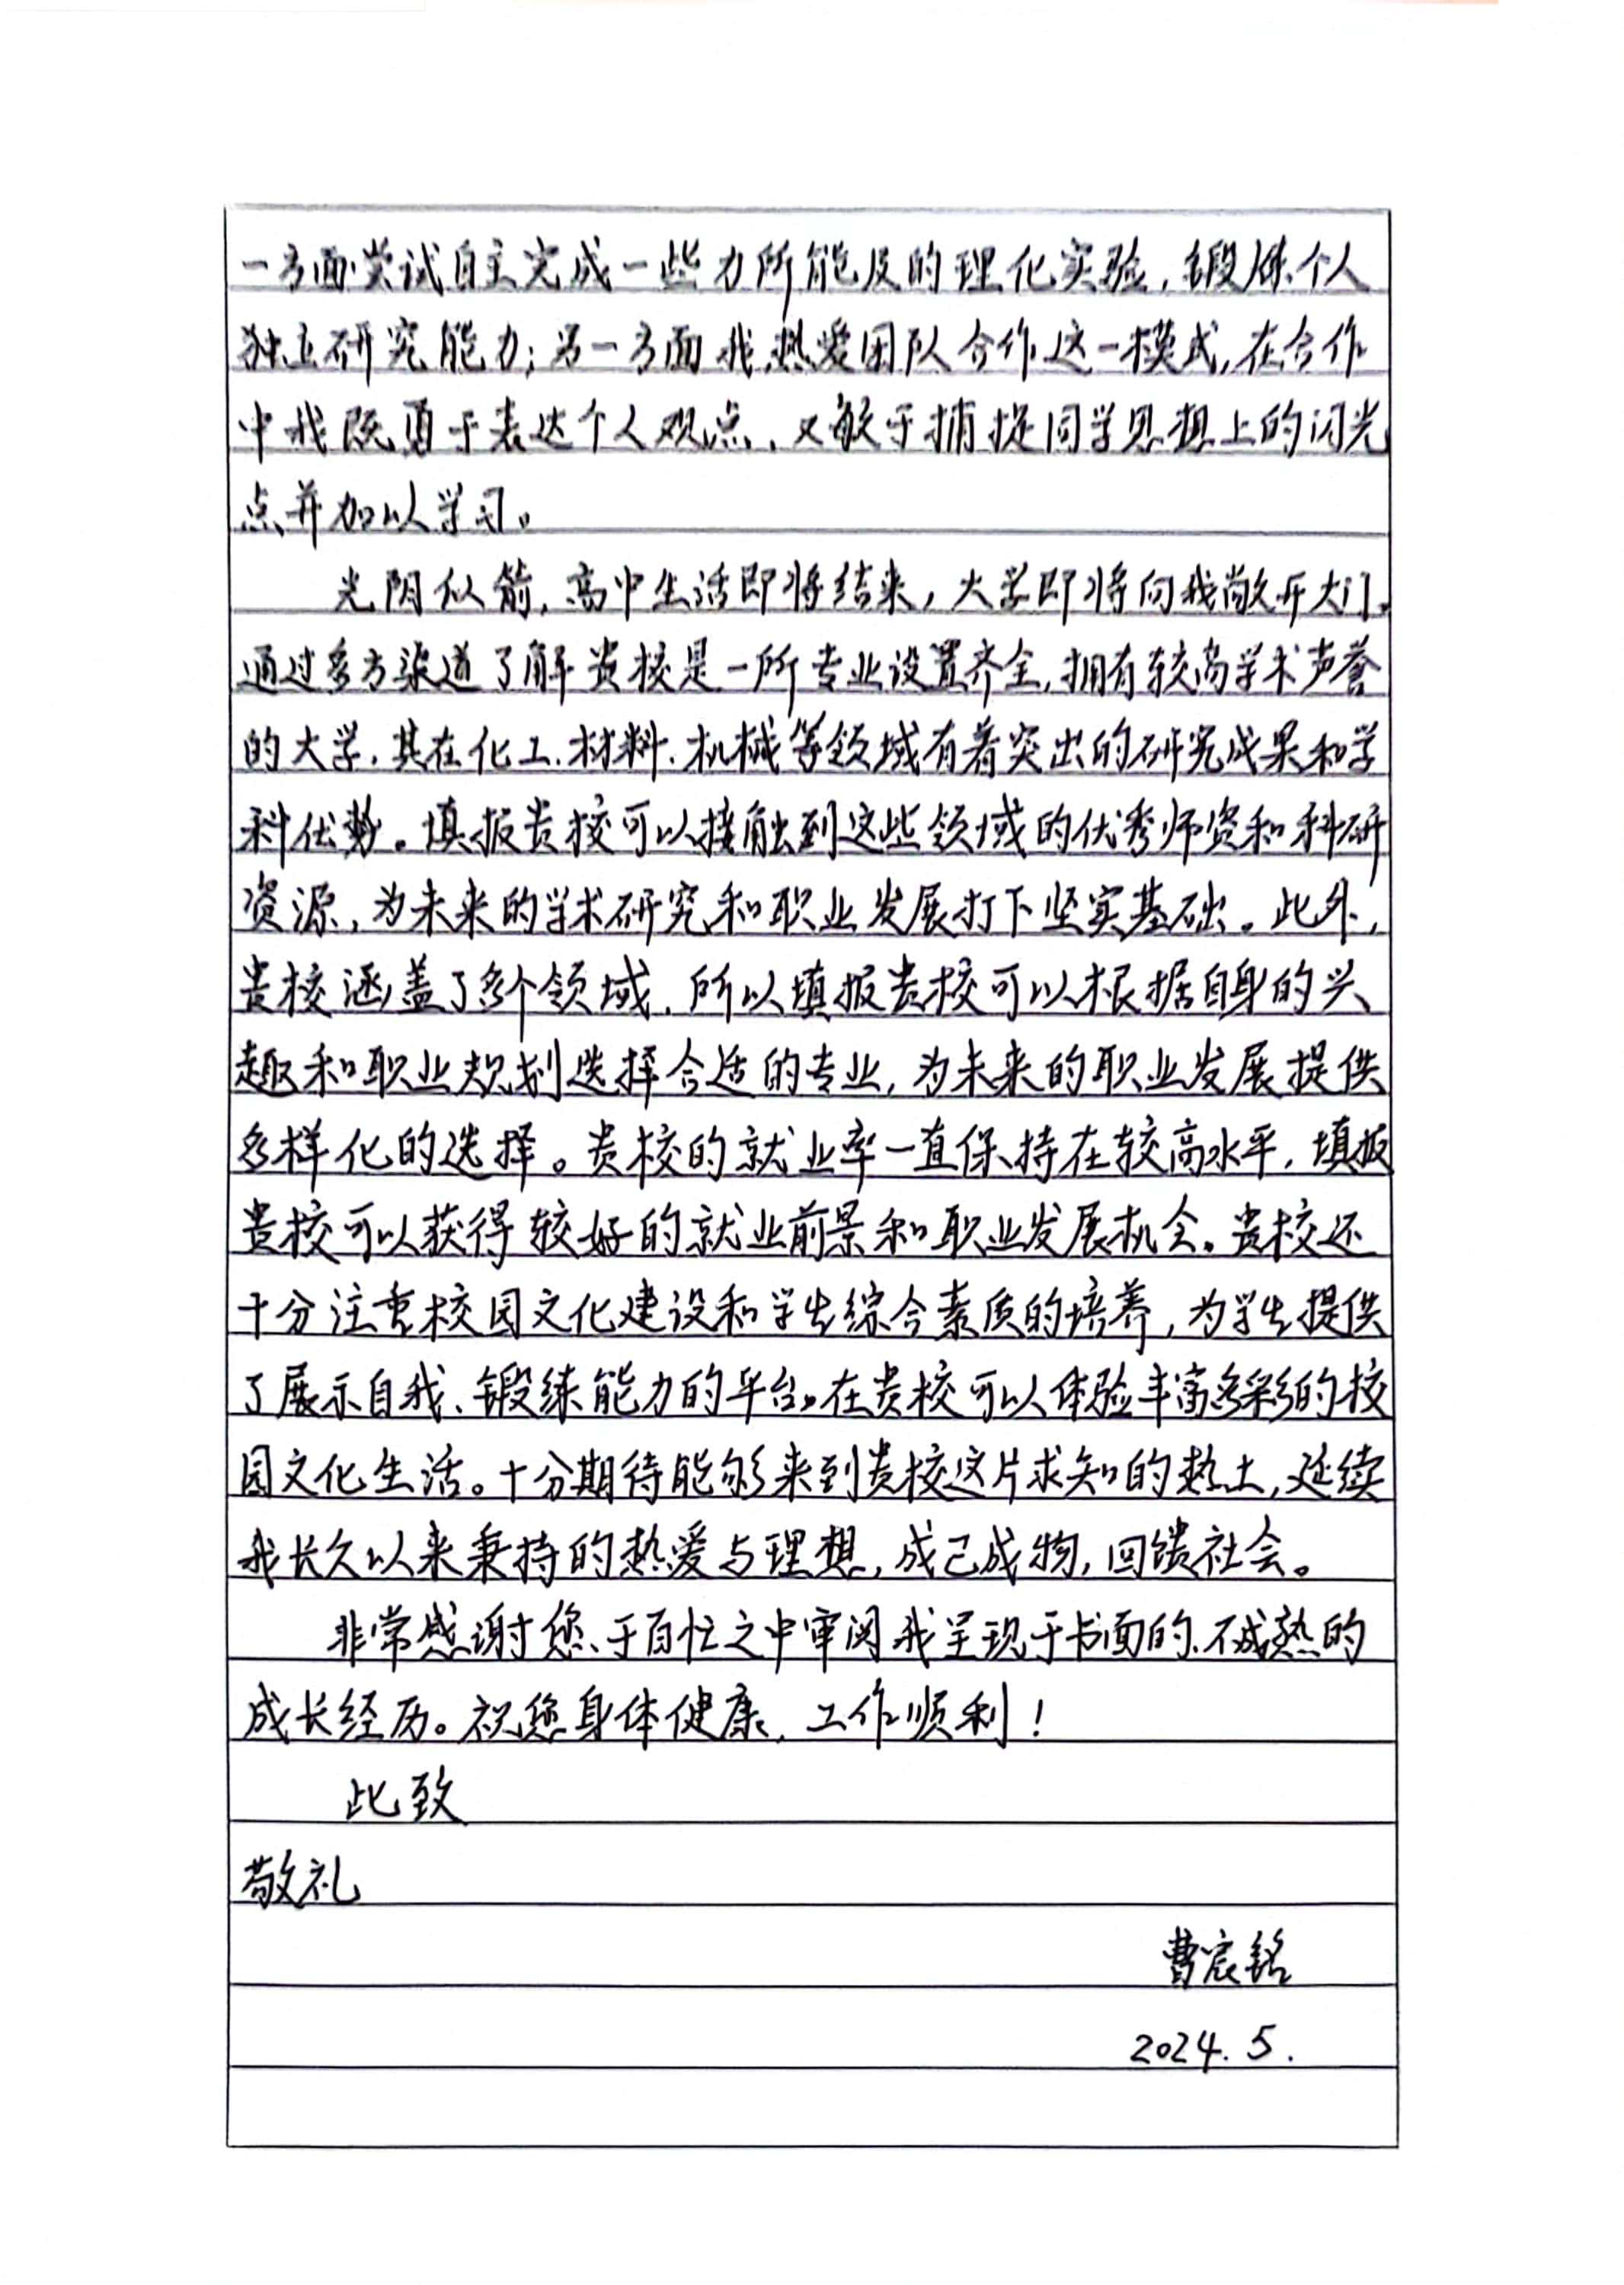 一方面尝试自主完成一些力所能及的理化实验，锻炼个人
独立研究能力；另一方面我热爱团队合作这一模式，在合作
中我既勇于表达个人观点，又敏于捕捉同学思想上的闪光
点并加以学习。
光阴似箭，高中生活即将结束，大学即将向我敞开大门。
通过多方渠道了解贵校是一所专业设置齐全，拥有较高学术声誉
的大学，其在化工、材料、机械等领域有着突出的研究成果和学
科优势。填报贵校可以接触到这些领域的优秀师资和科研
资源，为未来的学术研究和职业发展打下坚实基础。此外，
贵校涵盖了多个领域，所以填报贵校可以根据自身的兴
趣和职业规划选择合适的专业，为未来的职业发展提供
多样化的选择。贵校的就业率一直保持在较高水平，填报
贵校可以获得较好的就业前景和职业发展机会。贵校还
十分注重校园文化建设和学生综合素质的培养，为学生提供
了展示自我、锻练能力的平台。在贵校可以体验丰富多彩的校
园文化生活。十分期待能够来到贵校这片求知的热土，延续
我长久以来秉持的热爱与理想，成己成物，回馈社会。
非常感谢您于百忙之中审阅我呈现于书面的、不成熟的
成长经历。祝您身体健康，工作顺利！
此致
敬礼
曹宸铭
2024.5.